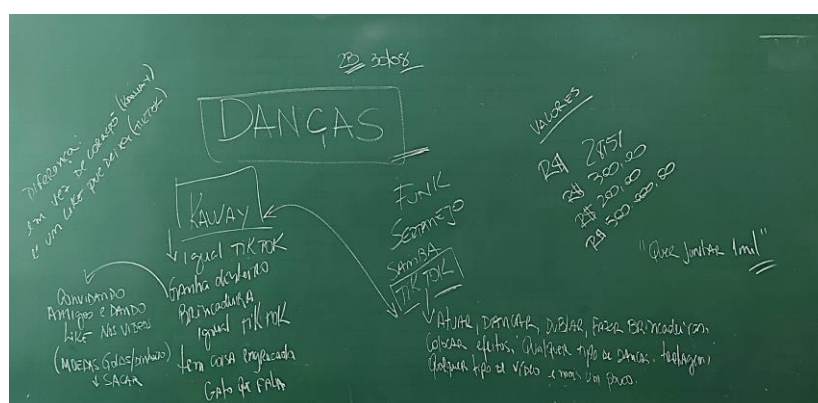 30/08
DANÇAS
Diferença:
em vez de coração (Kawai)
é um like que deixa (TIKTOK)
KAWAY
↓ Igual TIKTOK
Ganha dinheiro
Brincadeira
Igual TIKTOK
tem coisa engraçada
Gato q fala
Convidando
Amigos e dando
Like nos vídeos
(Moedas Golds/Dinheiro)
↓ SACAR
FUNK
SERTANEJO
SAMBA
TIKTOK
↓ Atuar, dançar, dublar, fazer brincadeiras,
Colocar efeitos, Qualquer tipo de danças,
Qualquer tipo de vídeo e mais um pouco.
VALORES
R$
R$ 300,00
R$ 200,00
R$ 500.000,00
"Quer juntar 1 mil"